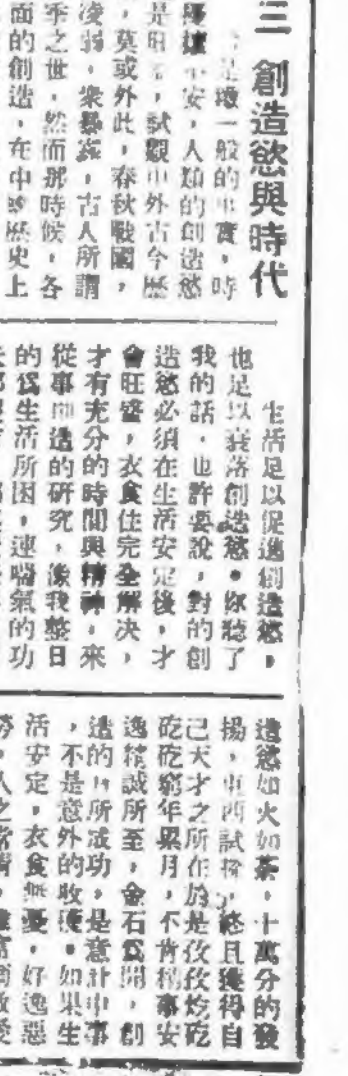 三 創造慾與時代
是 一般的事實，時
不安，人類的創造慾
是旺 ，試觀中外古今歷
，莫或外此，春秋戰國，
凌弱，衆暴寡，古人所謂
季之世，然而那時候，各
面的創造，在中 歷史上
生活足以促進創造慾，
也足以衰落創造慾。你聽了
我的話，也許要說，對的創
造慾必須在生活安定後，才
會旺盛，衣食住完全解決，
才有充分的時間與精神，來
從事創造的研究，像我整日
的爲生活所困，連喘氣的功
造慾如火如荼，十萬分的發
揚，東西試 ，終且獲得自
己天才之所在於是孜孜 矻
矻矻窮年累月，不肯稍事安
逸精誠所至，金石爲開，創
造的 所成功，是意計中事
，不是意外的收穫。如果生
活安定，衣食無憂，好逸惡
勞，人之常情，